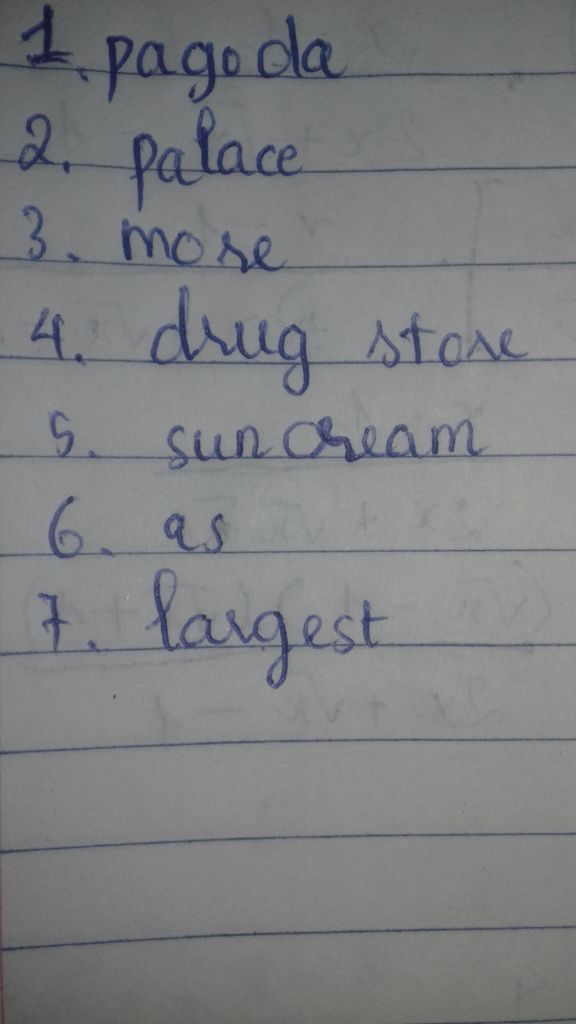 1. pagoda
2. palace
3. more
4. drug store
5. suncream
6. as
7. largest